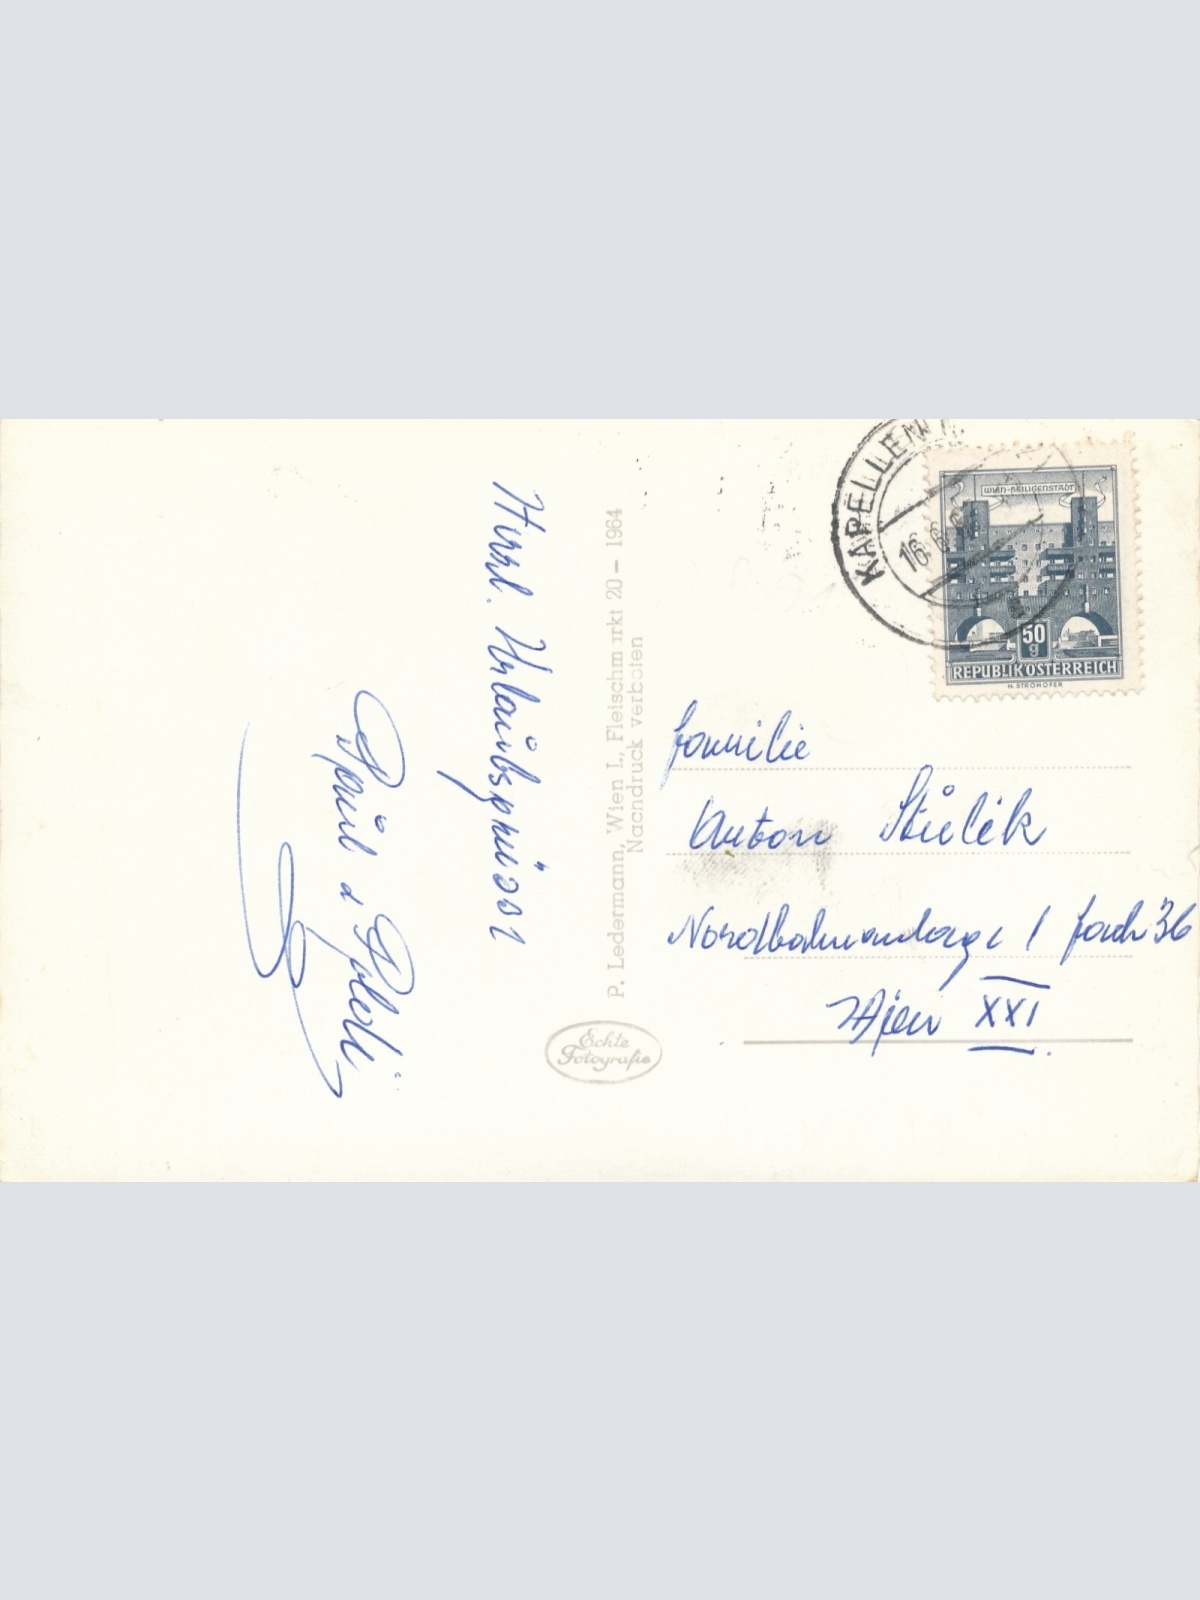 Herzl. Urlaubsgrüsse
P. Ledermann, Wien I., Fleischmarkt 20 – 1964
Nachdruck verboten
Echte
Fotografie
KAPELLEN
16.6.
WIEN-HEILIGENSTADT
50
g
REPUBLIK ÖSTERREICH
H. STROHOFER
Familie
Anton Stulik
Nordbahnanlage 1 fach 36
Wien XXI.